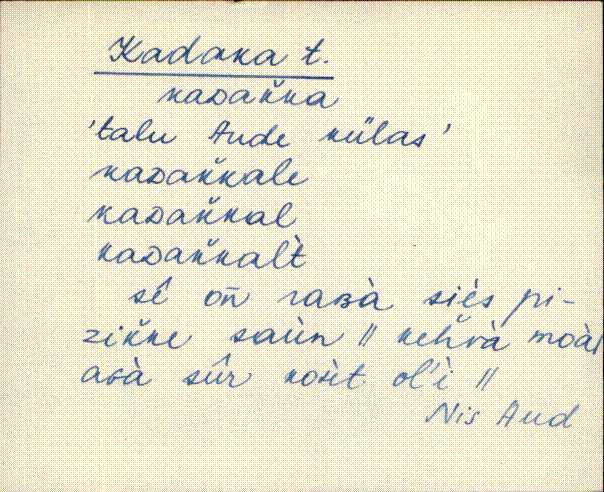 Kadaka t.
kaᴅak̆ka
'talu Aude külas'
kaᴅak̆kale
kaᴅak̆kal
kaᴅak̆kal̀t
sê on̄ raʙà siès pi-
zik̆ke saùn || kehv̆à moàl
avà sûr kosìt ol'ì ||
Nis Aud